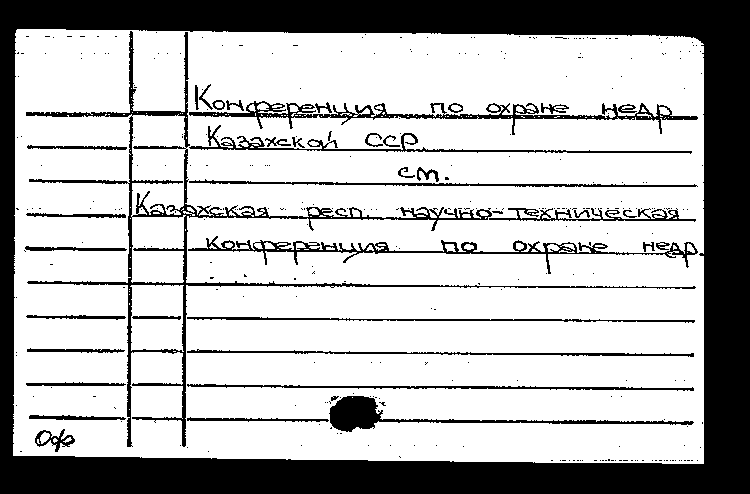 Конференция по охране недр
Казахской ССР
см.
Казахская респ. научно-техническая
конференция по охране недр.
Офр